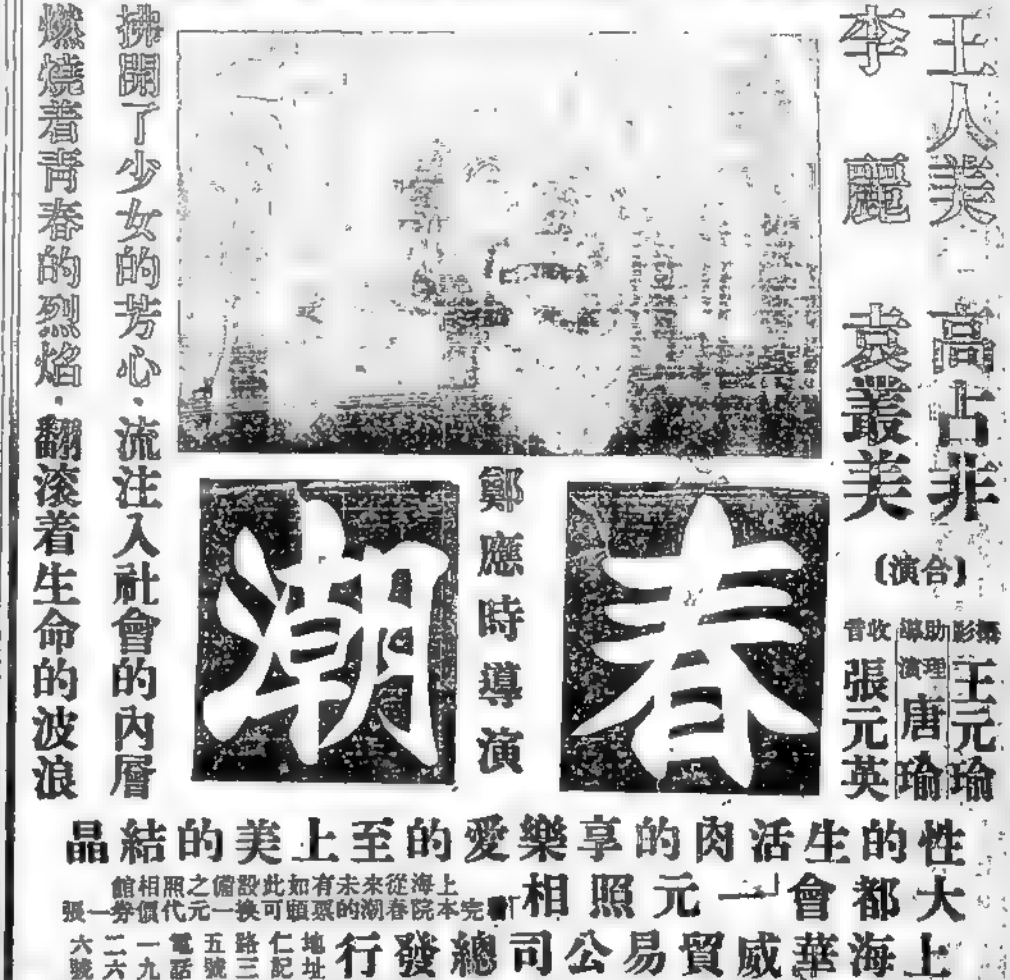 王人美 高占非
李麗 袁叢美
(合演)
攝影 王元瑜
助理導演 唐瑜
收音 張元英
春潮
鄭應時導演
拂開了少女的芳心·流注入社會的內層
燃燒着青春的烈焰·翻滚着生命的波浪
性的生活肉的享樂愛的至上美的結晶
大都會「一元照相」
上海從來未有如此設備之照相館
看完本院春潮的票頭可換一元代價券一張
上海華威貿易公司總發行
地址仁記路三五號電話一九二六六號